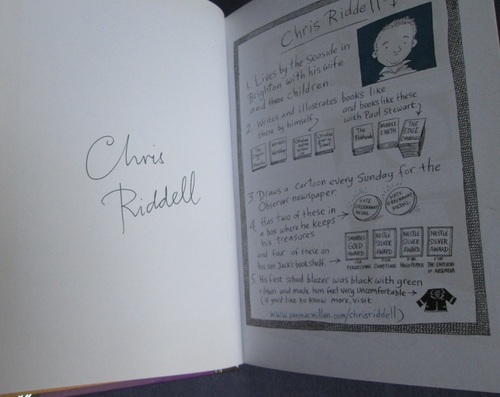 Chris
Riddell
Chris Riddell
1. Lives by the Seaside in
Brighton with his wife
and three children.
2. Writes and illustrates books like
these by himself
and books like these
with Paul Stewart.
THE EDGE
3. Draws a cartoon every Sunday for the
Observer newspaper.
4. Has two of these in
a box where he keeps
his treasures
KATE GREENAWAY MEDAL
KATE GREENAWAY MEDAL
and four of these on
his son Jack's bookshelf.
GOLD AWARD
NESTLE SILVER AWARD
NESTLE SILVER AWARD
NESTLE SILVER AWARD
5. His first school blazer was black with green
and made him feel very uncomfortable
(if you'd like to know more, visit
www.panmacmillan.com/chrisriddell)